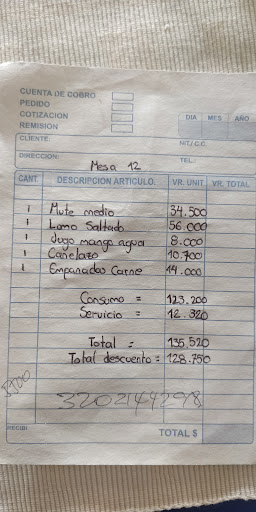 CUENTA DE COBRO
PEDIDO
COTIZACION
REMISION
DIA MES AÑO
CLIENTE: NIT/C.C.
DIRECCION: Mesa 12 TEL.:
CANT. DESCRIPCIÓN ARTICULO. VR. UNIT VR. TOTAL
1 Mute medio 34.500
1 Lomo Saltado 56.000
1 Jugo mango agua 8.000
1 Canelazo 10.700
1 Empanadas Carne 14.000
Consumo = 123.200
Servicio = 12.320
Total = 135.520
Total descuento = 128.750
RECIBI TOTAL $